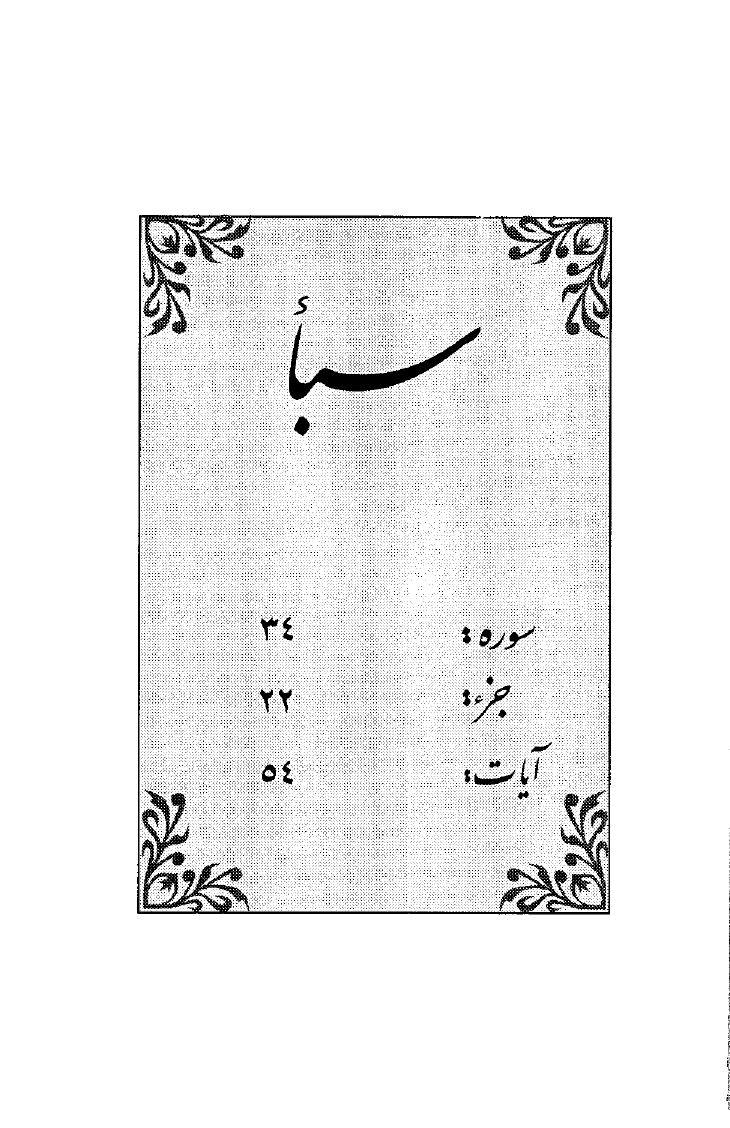 سبأ
سوره: ٣٤
جزء: ٢٢
آیات: ٥٤